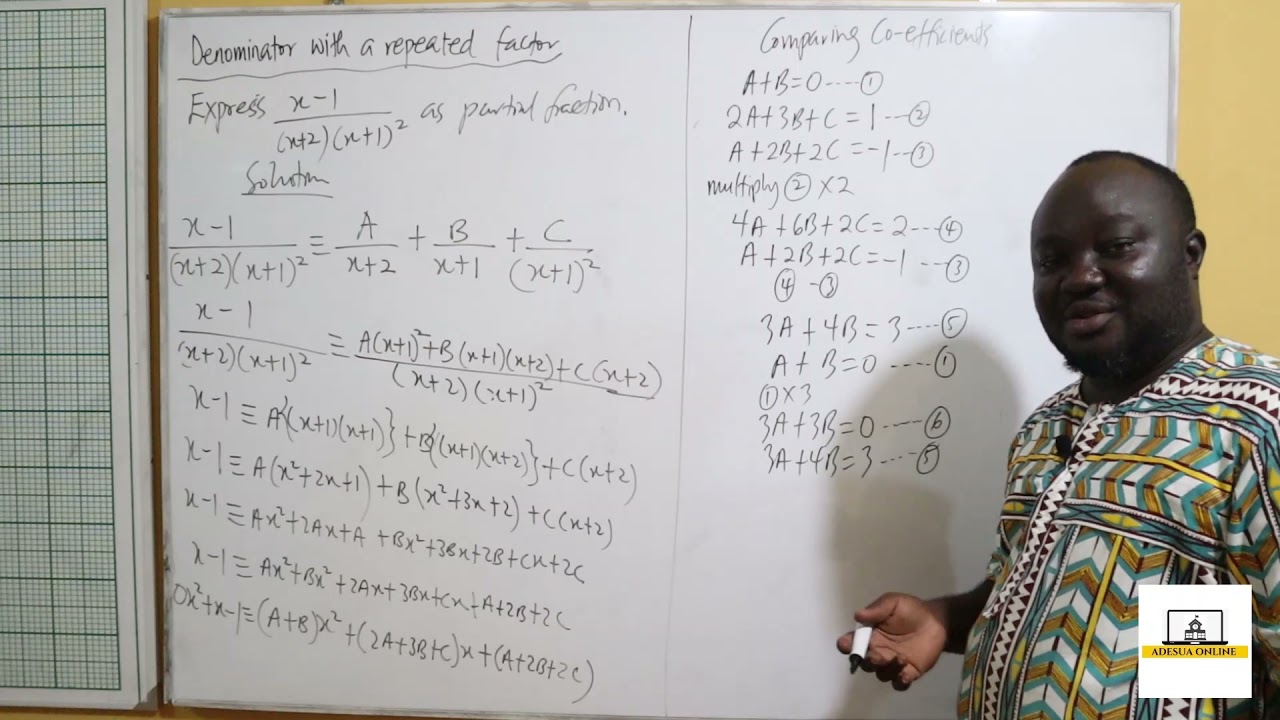 Denominator with a repeated factor
Express x-1/(x+2)(x+1)² as partial fraction.
Solution
x-1/(x+2)(x+1)² ≡ A/x+2 + B/x+1 + C/(x+1)²
x-1/(x+2)(x+1)² ≡ A(x+1)²+B(x+1)(x+2)+C(x+2)/(x+2)(x+1)²
x-1 ≡ A{(x+1)(x+1)}+B{(x+1)(x+2)}+C(x+2)
x-1 ≡ A(x²+2x+1)+B(x²+3x+2)+C(x+2)
x-1 ≡ Ax²+2Ax+A+Bx²+3Bx+2B+Cx+2C
x-1 ≡ Ax²+Bx²+2Ax+3Bx+Cx+A+2B+2C
0x²+x-1≡(A+B)x²+(2A+3B+C)x+(A+2B+2C)
Comparing Co-efficients
A+B=0----①
2A+3B+C=1--②
A+2B+2C=-1--③
multiply ② ×2
4A+6B+2C=2---④
A+2B+2C=-1---③
④ -③
3A+4B=3----⑤
A+B=0-----①
①×3
3A+3B=0----⑥
3A+4B=3----⑤
ADESUA ONLINE